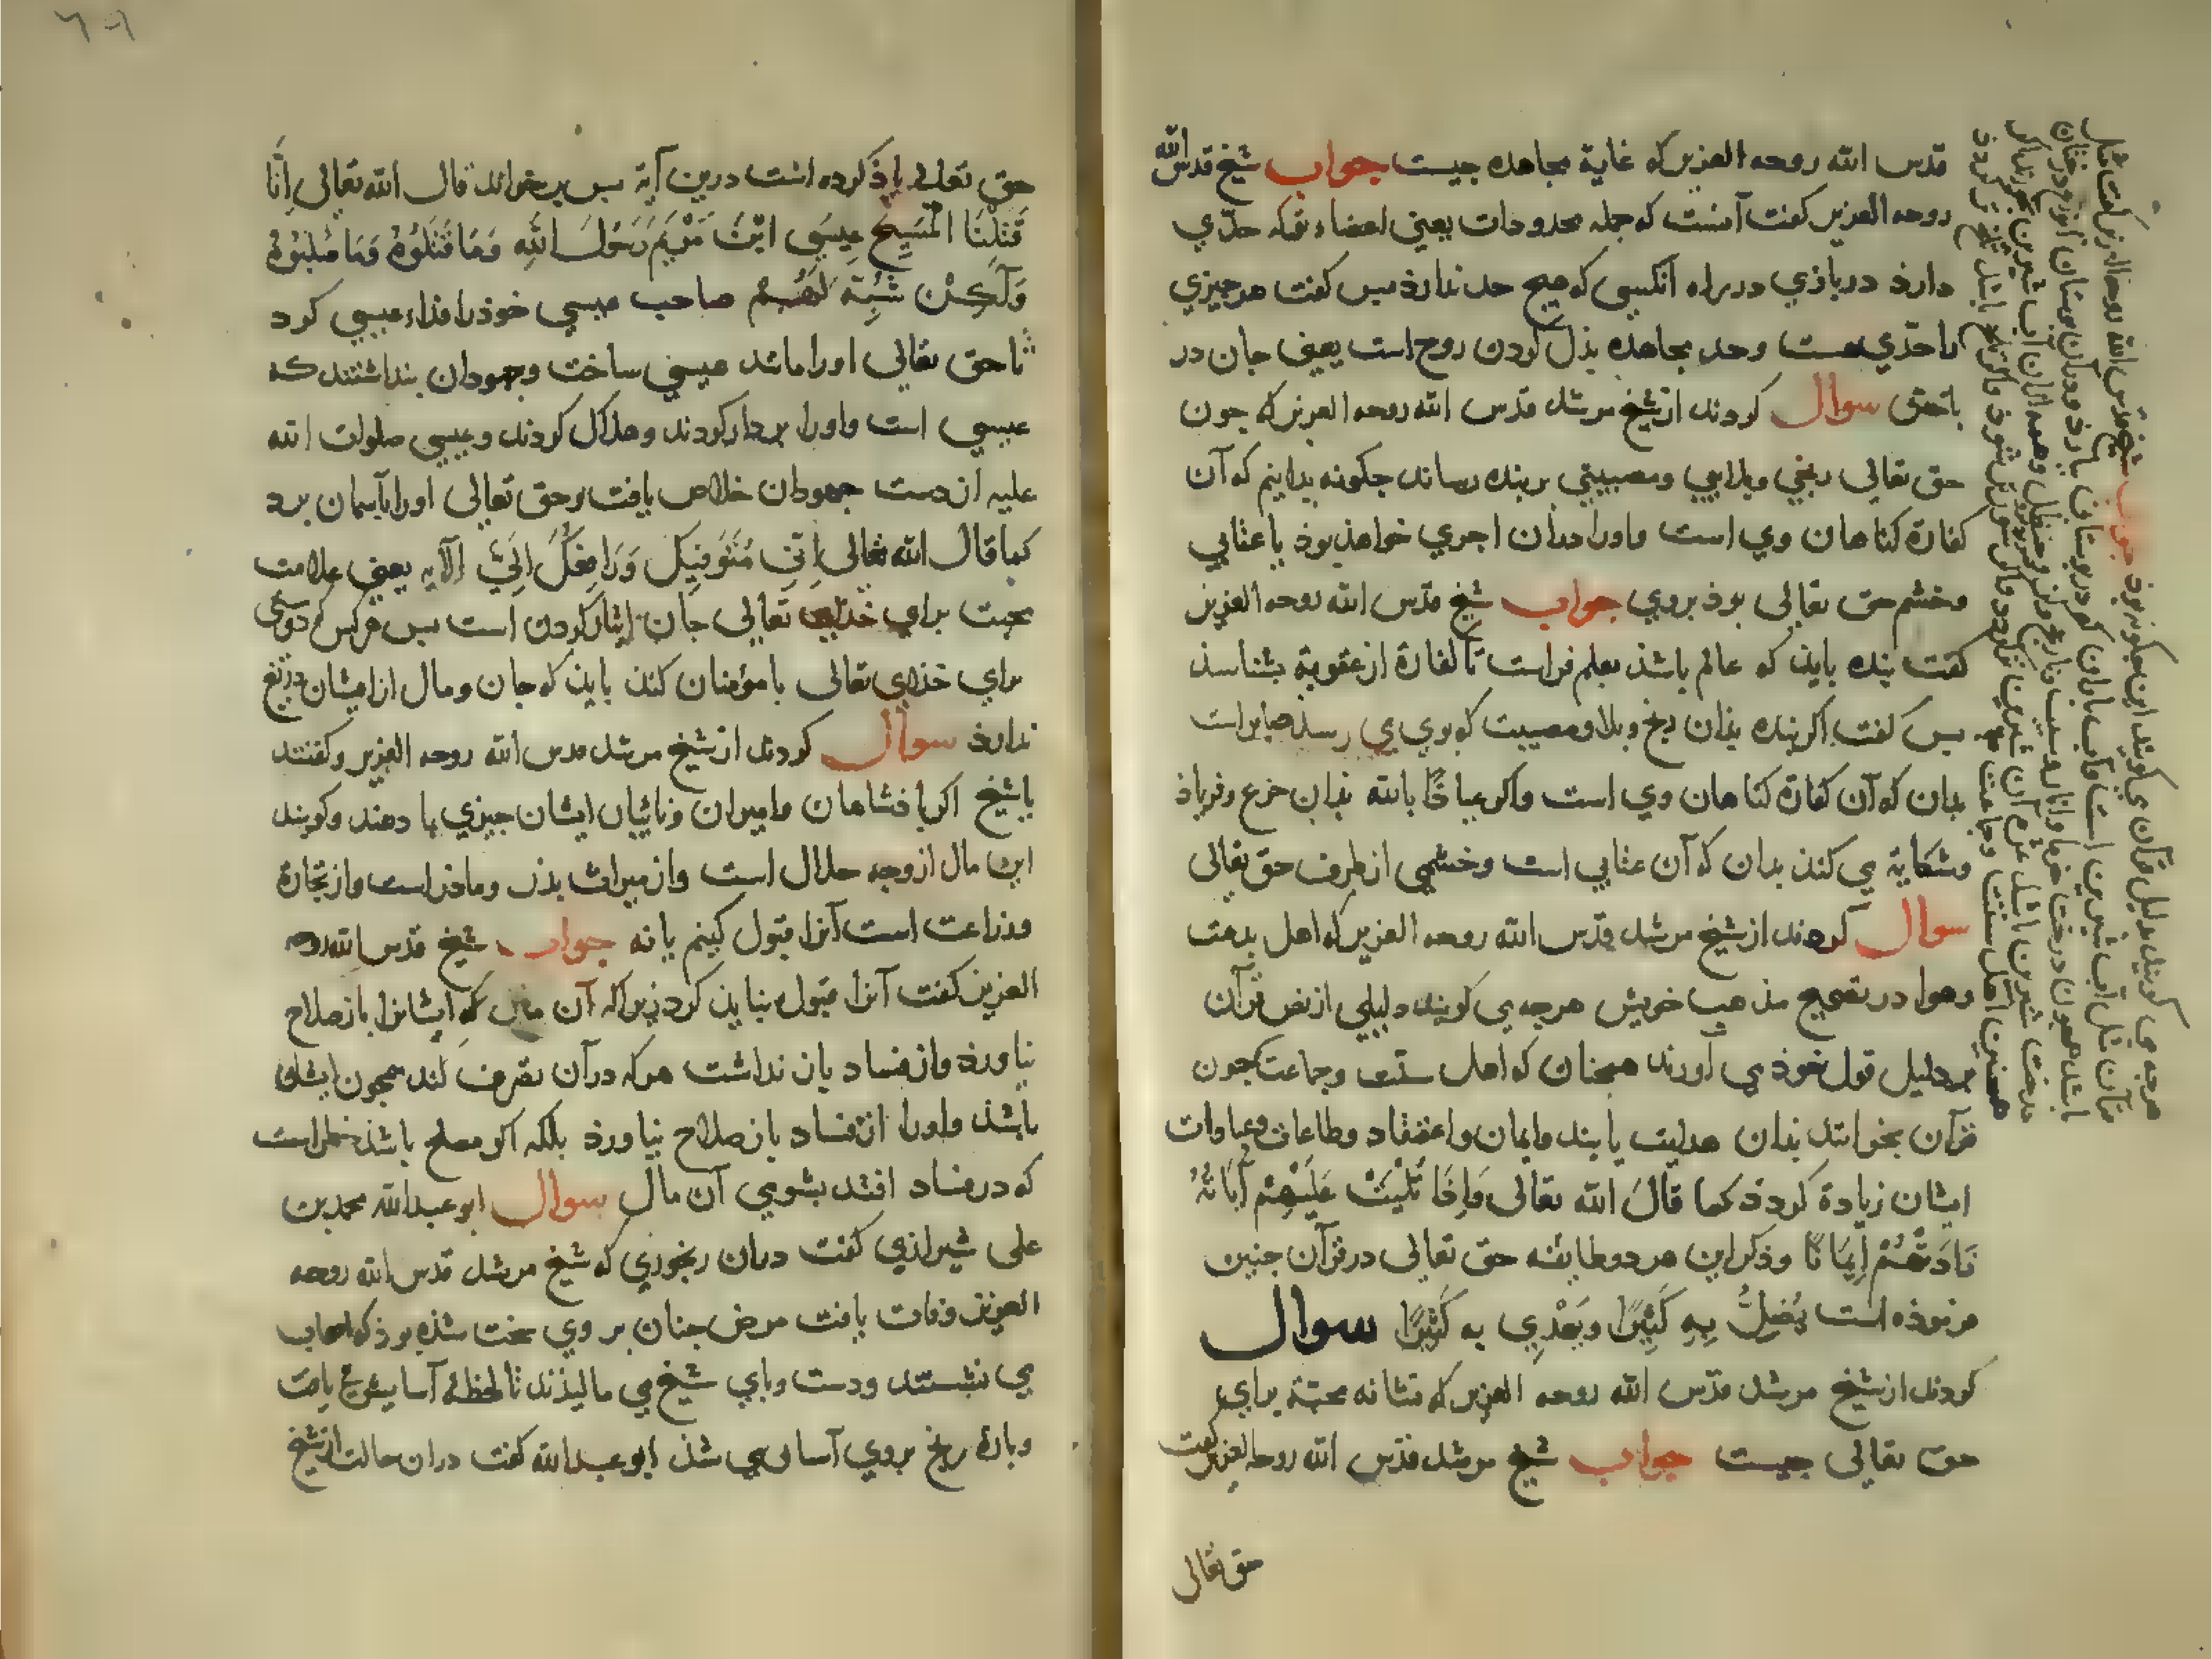 قدس الله روحه العزیز که غایة مجاهده چیست جواب شیخ قدس الله
روحه العزیز کفت آنست که جمله محدودات یعنی اعضاء تو که حدّي
دارد دربازي در راه آنکسی که هیچ حد ندارد بس کفت هر جیزي
را حدّي هست وحد مجاهده بذل کردن روح است یعنی جان در
باختن سوال کردند از شیخ مرشد قدس الله روحه العزیز که جون
حق تعالی رنجي وبلایي ومصیبتي بر بنده رساند جکونه بدانیم که آن
کفارة کناهان وي است واورا بدان اجري خواهذ بوذ یا عتابي
وخشم حق تعالی بوذ بروي جواب شیخ قدس الله روحه العزیز
کفت بنده بایذ که عالم باشذ بعلم فراست تا کفارة از عقوبة بشناسذ
بس کفت اکر بنده بذان رنج وبلا ومصیبت که بوي مي رسذ صابر است
بدان که آن کفارة کناهان وي است واکر عیاذا بالله بذان جزع وفریاذ
وشکایة مي کنذ بدان که آن عتابي است وخشمي از طرف حق تعالی
سوال کردند از شیخ مرشد قدس الله روحه العزیز که اهل بدعت
وهوا در تصحیح مذهب خویش هرچه مي کویند دلیلي از نص قرآن
بر دلیل قول خوذ مي آورند همچنان که اهل سنّت وجماعت جون
قرآن بخوانند بذان هدایت یابند وایمان واعتقاد وطاعات وعبادات
ایشان زیادة کردذ کما قال الله تعالی وَاِذَا تُلِیَتْ عَلَیْهِمْ آیَاتُهُ
زَادَتْهُمْ اِیمَانًا وذکر این هر دو طایفه حق تعالی در قرآن جنین
فرموذه است یُضِلُّ بِهِ کَثِیرًا وَیَهْدِي بِهِ کَثِیرًا سوال
کردند از شیخ مرشد قدّس الله روحه العزیز که نشانه محبّة براي
حق تعالی چیست جواب شیخ مرشد قدّس الله روحه العزیز کفت
حق تعالی
هرچه مي کویند بدلیل قرآن مي کویند این جکونه بوذ جواب شیخ قدّس الله روحه العزیز کفت مثل
قرآن مثل آب شیرین است وآب باران که در بوستان بارذ ودر آن بوستان انواع درختان
باشد همچون درخت خرما وانار وسیب ونارنج وحنظل وهمه از آن آب شیرین
درخت شیرین باشد ثمره آن شیرین کردد واکر تلخ باشد تلخ تر کردذ
همچنین اهل سنّت وجماعت
حق تعالی یاذ کرده است درین آیة بس برخواند قال الله تعالی اِنَّا
قَتَلْنَا الْمَسِیحَ عِیسَی ابْنَ مَرْیَمَ رَسُولَ اللّهِ وَمَا قَتَلُوْهُ وَمَا صَلَبُوْهُ
وَلٰکِنْ شُبِّهَ لَهُمْ صاحب عیسی خوذ را فداء عیسی کرد
تا حق تعالی اورا مانند عیسی ساخت وجهودان بنداشتند که
عیسی است واورا بردار کردند وهلاک کردند وعیسی صلوات الله
علیه از دست جهودان خلاص یافت وحق تعالی اورا بآسمان برد
کما قال الله تعالی اِنّي مُتَوَفِّیکَ وَرَافِعُکَ اِلَيَّ الآیه یعنی علامت
محبت براي خذاي تعالی جان ایثار کردن است بس هر کس که دوستي
براي خذاي تعالی با مؤمنان کنذ بایذ که جان ومال از ایشان دریغ
ندارذ سوال کردند از شیخ مرشد قدس الله روحه العزیز وکفتند
یا شیخ اکر باذشاهان وامیران ونائبان ایشان جیزي بما دهند وکویند
این مال از وجه حلال است واز میراث بذر وماذر است واز تجارة
وزراعت است آنرا قبول کنیم یا نه جواب شیخ قدس الله روحه
العزیز کفت آنرا قبول نبایذ کرد زیرا که آن مالي که ایشانرا با صلاح
نیاورذ واز فساد باز نداشت هرکه در آن تصرف کند همچون ایشان
باشذ واورا از فساد باز صلاح نیاورذ بلکه اکر مصلح باشذ خطر است
که در فساد افتد بشومي آن مال سوال ابو عبدالله محمد بن
علی شیرازي کفت دران رنجوري که شیخ مرشد قدس الله روحه
العزیز وفات یافت مرض جنان بر وي سخت شذه بوذ که اصحاب
مي نشستند ودست وباي شیخ مي مالیذند تا لحظهٔ آسایش مي یافت
وبارهٔ رنج بروي آسان مي شذ ابو عبدالله کفت دران حالت از شیخ